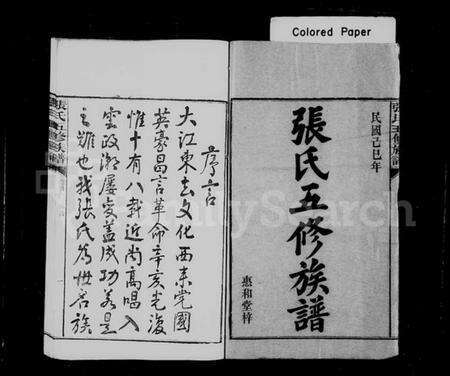 Colored Paper
張氏五修族譜
民國己巳年
張氏五修族譜
惠和堂梓
序言
大江東去文化西來党國
英豪昌言革命辛亥光復
惟十有八載近尚高唱入
雲政潮屢変蓋成功若是
之難也我張氏為世名族
張氏五修族譜
FamilySearch